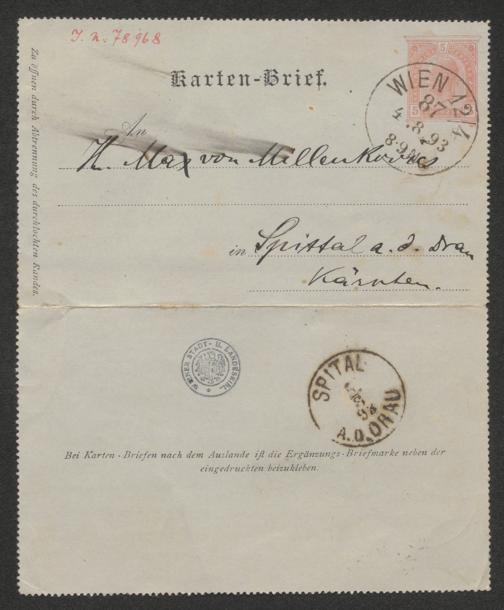 I. n. 78968
Karten-Brief.
5 5
WIEN 12/1
87
4.8.93
An
H. Max von Millenkovics
in Spittal a. d. Drau
Kärnten.
Zu öffnen durch Abtrennung des durchlochten Randes.
WIENER STADT- U. LANDESBIBL.
SPITAL
A.D. DRAU
Bei Karten-Briefen nach dem Auslande ist die Ergänzungs-Briefmarke neben der
eingedruckten beizukleben.